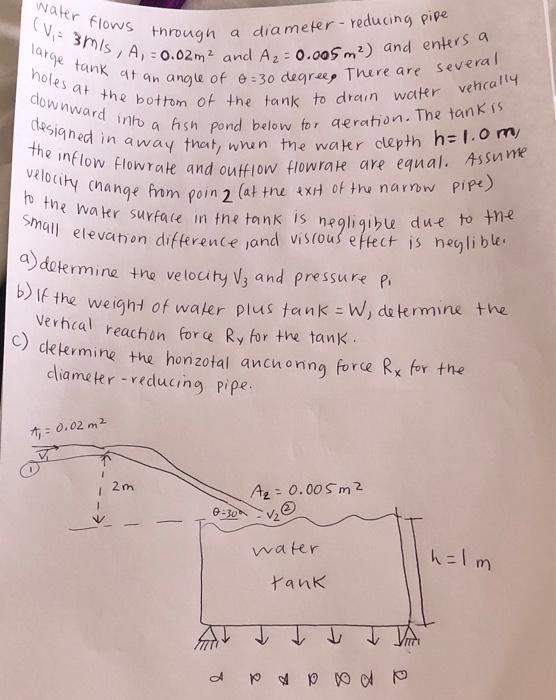 water flows through a diameter-reducing pipe
(V₁= 3m/s, A₁=0.02m² and A₂=0.005m²) and enters a
large tank at an angle of θ=30 degrees There are several
holes at the bottom of the tank to drain water vetically
downward into a fish pond below for aeration. The tank is
designed in a way that, when the water depth h=1.0m,
the inflow flowrate and outflow flowrate are equal. Assume
velocity change from poin 2 (at the exit of the narrow pipe)
to the water surface in the tank is negligible due to the
small elevation difference, and viscous effect is neglible.
a) determine the velocity V₃ and pressure P₁
b) If the weight of water plus tank = W, determine the
vertical reaction force Ry for the tank.
c) determine the horizotal anchoring force Rx for the
diameter-reducing pipe.
A₁=0.02 m²
V₁
①
2m
A₂ = 0.005m²
θ=30°
V₂ ②
water
tank
h=1m